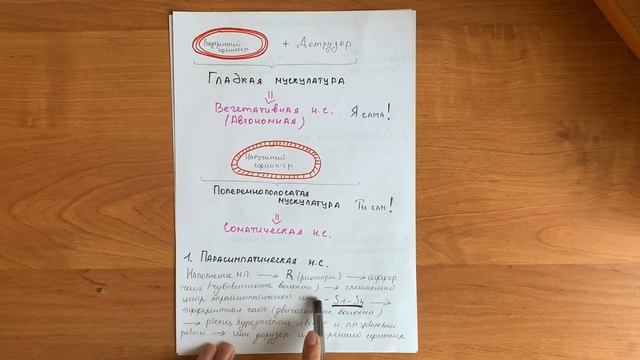 Внутренний сфинктер + Детрузор
Гладкая мускулатура
Вегетативная н.с. Я сама!
(Автономная)
Наружный сфинктер
Поперечнополосатая
мускулатура Ты сам!
Соматическая н.с.
1. Парасимпатическая н.с.
Наполнение М.П. → R (рецепторы) → аффер
часть (чувствительные волокна) →
центр парасимпатической - S1-S4 →
эфферентная часть (двигательные волокна)
→ plexus hypogastricus inferior и nn.
pelvici → детрузор и внутренний сфинктер